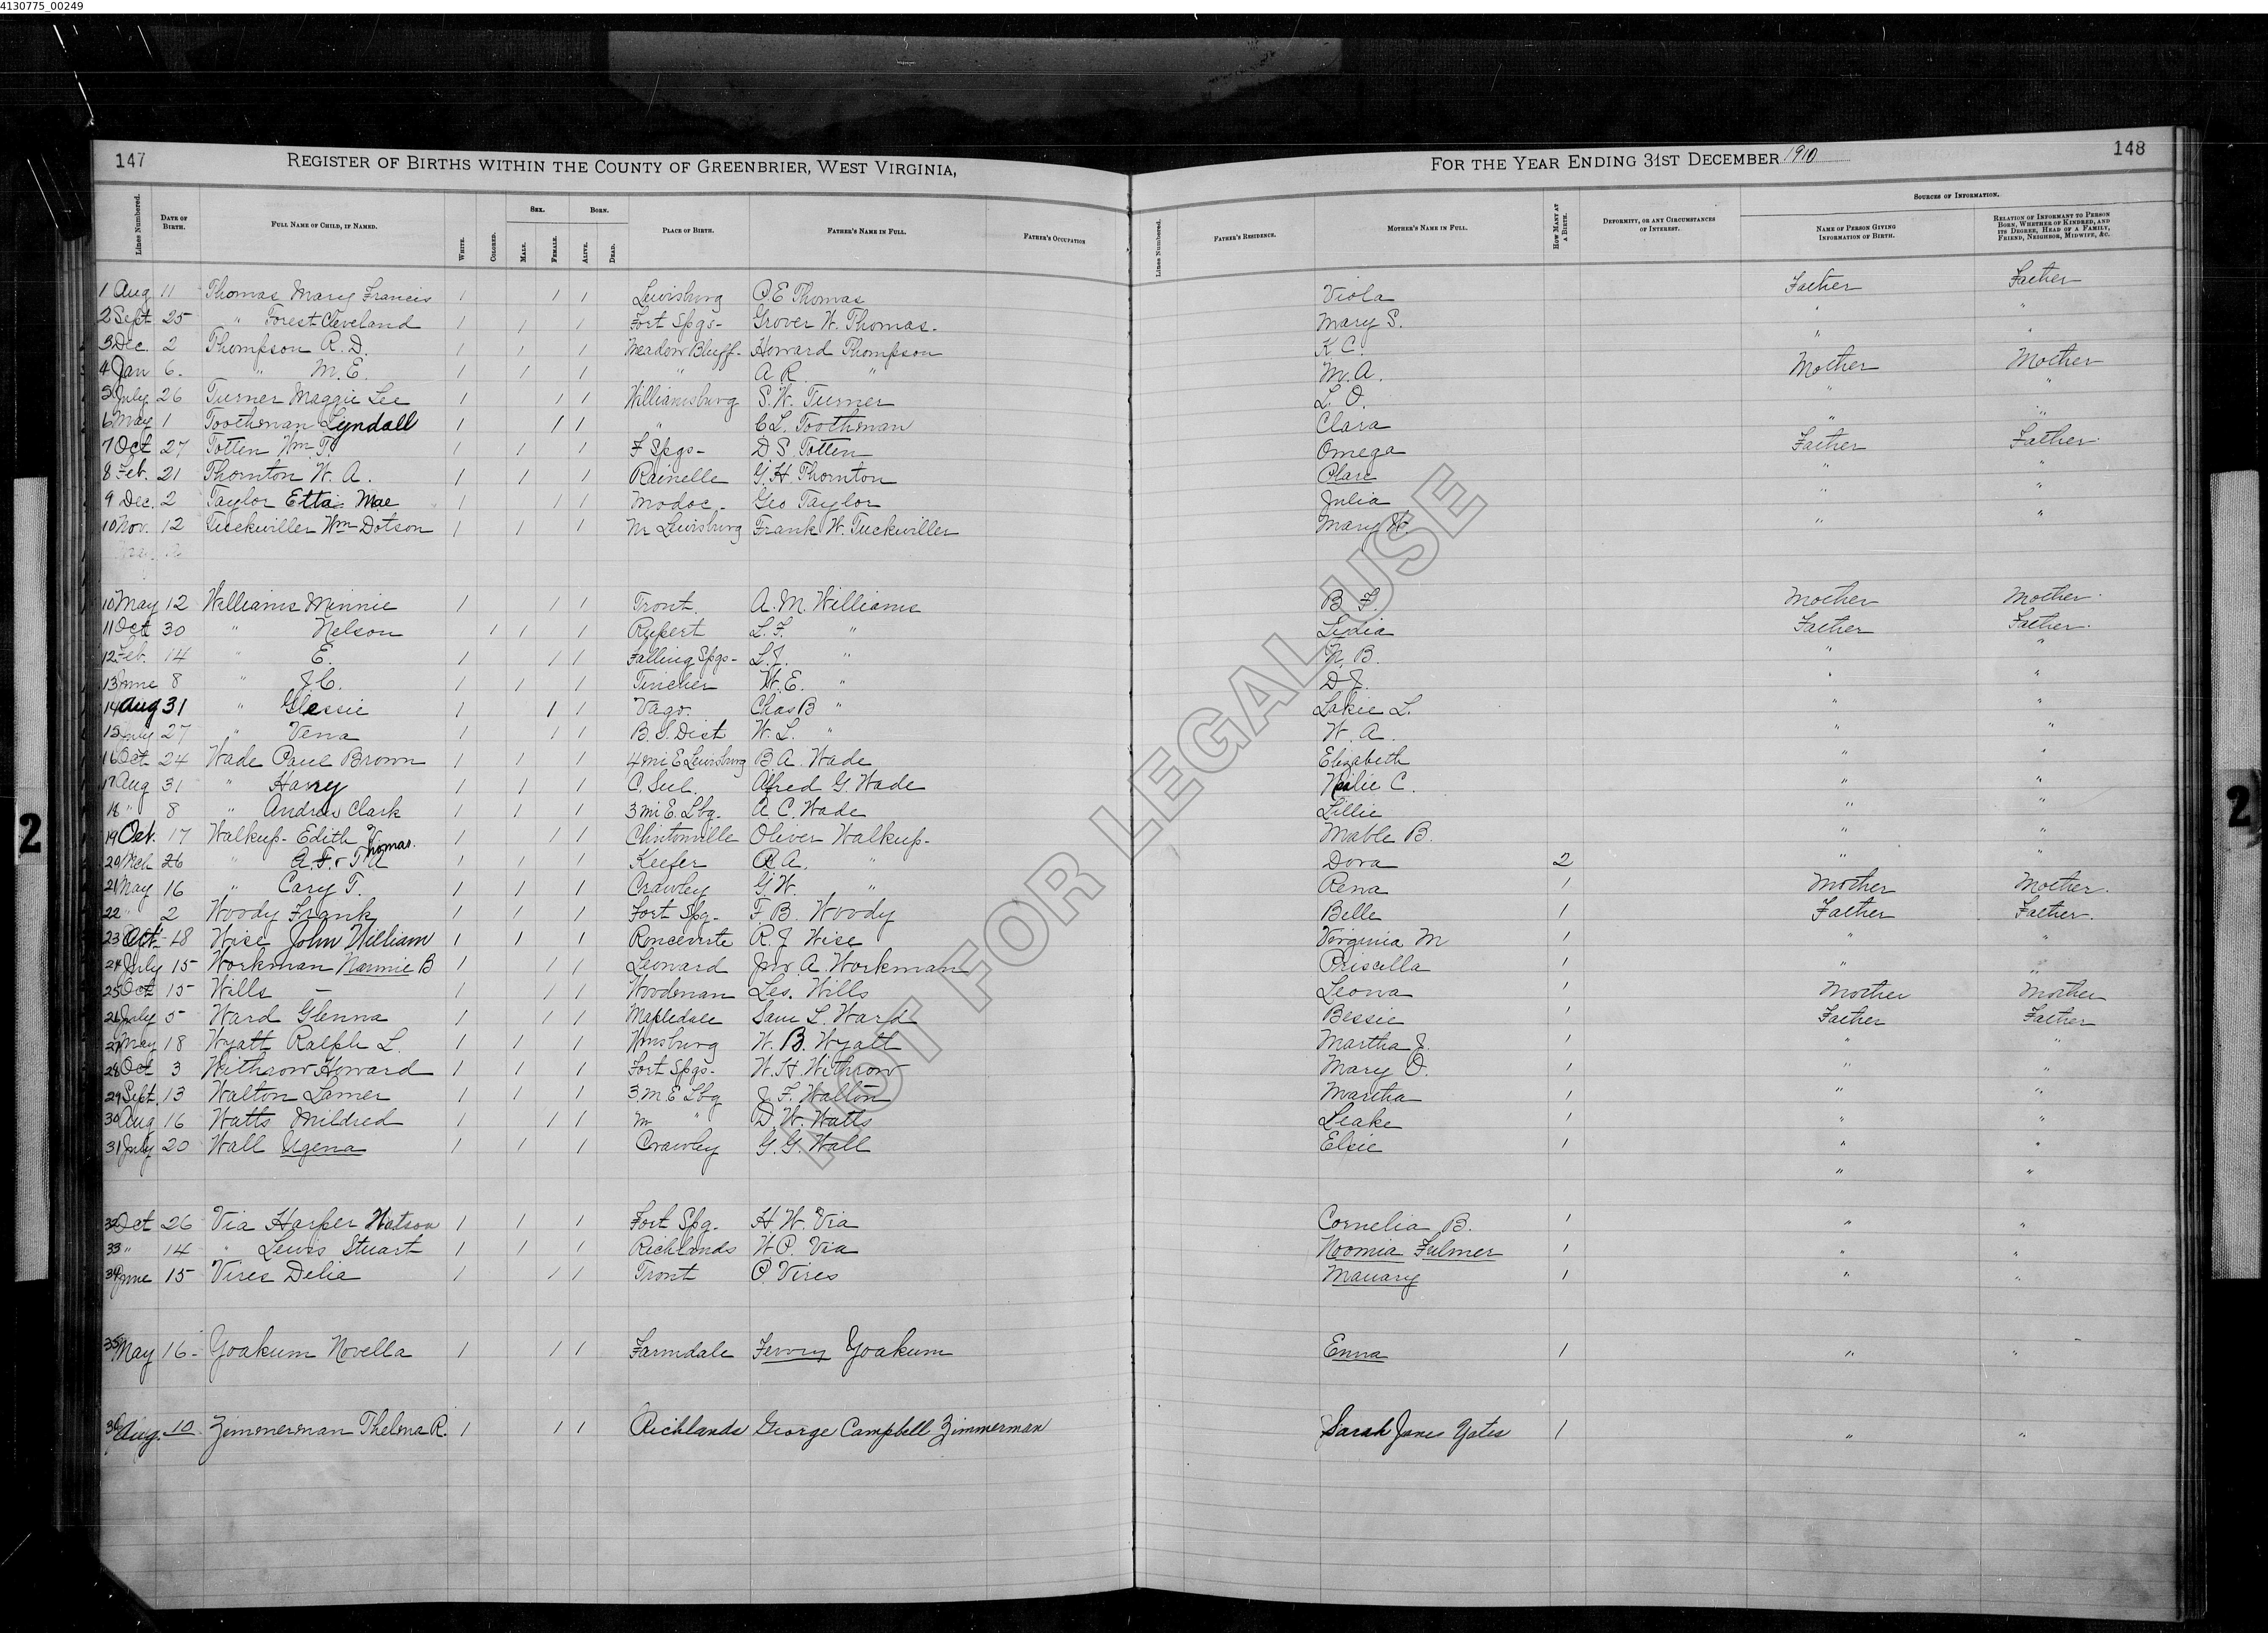 4130775_00249
147 REGISTER OF BIRTHS WITHIN THE COUNTY OF GREENBRIER, WEST VIRGINIA, FOR THE YEAR ENDING 31ST DECEMBER 1910 148
Lines Numbered. DATE OF BIRTH. FULL NAME OF CHILD, IF NAMED. WHITE. COLORED. SEX. MALE. FEMALE. BORN. ALIVE. DEAD. PLACE OF BIRTH. FATHER'S NAME IN FULL. FATHER'S OCCUPATION Lines Numbered. FATHER'S RESIDENCE. MOTHER'S NAME IN FULL. HOW MANY AT A BIRTH. DEFORMITY, OR ANY CIRCUMSTANCES OF INTEREST. SOURCES OF INFORMATION. NAME OF PERSON GIVING INFORMATION OF BIRTH. RELATION OF INFORMANT TO PERSON BORN, WHETHER OF KINDRED, AND ITS DEGREE, HEAD OF A FAMILY, FRIEND, NEIGHBOR, MIDWIFE, &C.
1 Aug 11 Thomas Mary Francis 1 1 1 Lewisburg C.E Thomas Viola Father Father
2 Sept 25 " Forest Cleveland 1 1 1 Fort Spgs- Grover W. Thomas. Mary S. " "
3 Dec. 2 Thompson R.D. 1 1 1 Meadow Bluff- Howard Thompson K C. " "
4 Jan 6. " M.E. 1 1 1 " A R. " M.A. Mother Mother
5 July 26 Turner Maggie Lee 1 1 1 Williamsburg S.W. Turner L.O. " "
6 May 1 Toothman Lyndall 1 1 1 " C L. Toothman Clara " "
7 Oct 27 Totten Wm. T. 1 1 1 F Spgs- D S. Totten Omega Father Father.
8 Feb. 21 Thornton W. A. 1 1 1 Rainelle G.H. Thornton Clare " "
9 Dec. 2 Taylor Etta Mae 1 1 1 Modoc- Geo Taylor Julia " "
10 Nov. 12 Tuckwiller Wm Dotson 1 1 1 Nr Lewisburg Frank W. Tuckwiller Mary W. " "
10 May 12 Williams Minnie 1 1 1 Tront. A.M. Williams B F. Mother Mother.
11 Oct 30 " Nelson 1 1 1 Rupert L.F. " Lydia Father Father.
12 Feb. 14 " E. 1 1 1 Falling Spgs- L.J. " N.B. " "
13 June 8 " J.C. 1 1 1 Tincher W.E. " D J. " "
14 Aug 31 " Glessie 1 1 1 Vago. Chas B " Lakie L. " "
15 July 27 " Vena 1 1 1 B.S. Dist W.L. " W.A. " "
16 Oct 24 Wade Paul Brown 1 1 1 4 mi E Lewisburg B A. Wade Elizabeth " "
17 Aug 31 " Harry 1 1 1 C. Sul. Alfred G. Wade C. " "
18 " 8 " Andrew Clark 1 1 1 3 mi E. Lbg. A C. Wade Lillie " "
19 Oct. 17 Walkup- Edith 1 1 1 Clintonville Oliver Walkup- Mable B. " "
20 Mch 26 " A.F. & Thomas. 1 1 1 Keefer A. " Dora 2 " "
21 May 16 " Cary T. 1 1 1 Crawley G.W. " Rena 1 Mother Mother.
22 " 2 Woody Frank 1 1 1 Fort Spg- F.B. Woody Belle 1 Father Father.
23 Oct. 18 Wise John William 1 1 1 Ronceverte R.J Wise Virginia M 1 " "
24 July 15 Workman Nannie B 1 1 1 Leonard Jno. A. Workman Priscilla 1 " "
25 Oct 15 Wills — 1 1 1 Woodman Les. Wills Leona 1 Mother Mother
26 July 5 Ward Glenna 1 1 1 Mapledale Sam L. Ward Bessie 1 Father Father
27 May 18 Wyatt Ralph L. 1 1 1 Wmsburg W. B. Wyatt Martha J. 1 " "
28 Oct 3 Withrow Howard 1 1 1 Fort Spgs- W.H. Withrow Mary O. 1 " "
29 Sept. 13 Walton Lamer 1 1 1 3 M E Lbg J.F. Walton Martha 1 " "
30 Aug 16 Watts Mildred 1 1 1 " D.W. Watts Leake 1 " "
31 July 20 Wall Ugena 1 1 1 Crawley G.G. Wall Elsie 1 " "
" "
32 Oct 26 Via Harper Watson 1 1 1 Fort Spg. H W. Via Cornelia B. 1 " "
33 " 14 " Lewis Stuart 1 1 1 Richlands W.P. Via Noomia Fulmer 1 " "
34 June 15 Vires Delia 1 1 1 Tront P. Vires Mauary 1 " "
35 May 16- Yoakum Novella 1 1 1 Farmdale Ferry Yoakum Enna 1 " "
36 Aug. 10 Zimmerman Thelma R. 1 1 1 Richlands George Campbell Zimmerman Sarah Janes Yates 1 " "
NOT FOR LEGAL USE
2
2